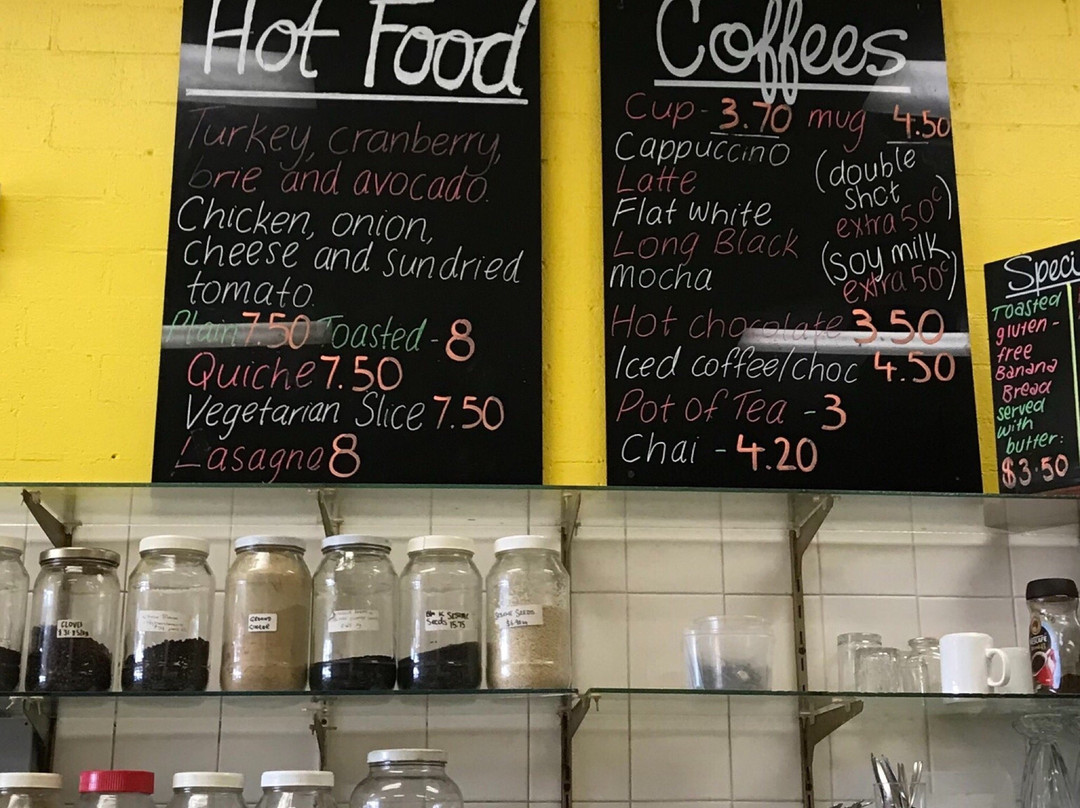 Hot Food
Turkey, cranberry,
brie and avocado.
Chicken, onion,
cheese and sundried
tomato.
Plain 7.50 Toasted - 8
Quiche 7.50
Vegetarian Slice 7.50
Lasagna 8
Coffees
Cup - 3.70 mug 4.50
Cappuccino
Latte
Flat white
Long Black
mocha
(double
shot
extra 50c)
(soy milk
extra 50c)
Hot chocolate 3.50
Iced coffee/choc 4.50
Pot of Tea - 3
Chai - 4.20
Speci
Toasted
gluten -
free
Banana
Bread
served
with
butter:
$3.50
CLOVES
GROUND
GINGER
Seeds
SESAME SEEDS
NESCAFE